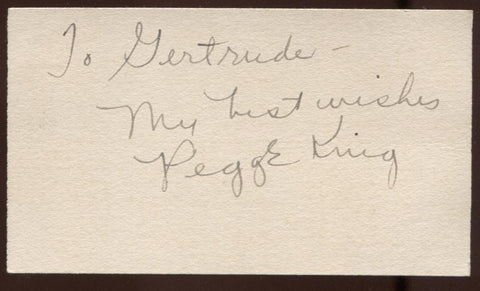 To Gertrude -
My best wishes
Peggy King